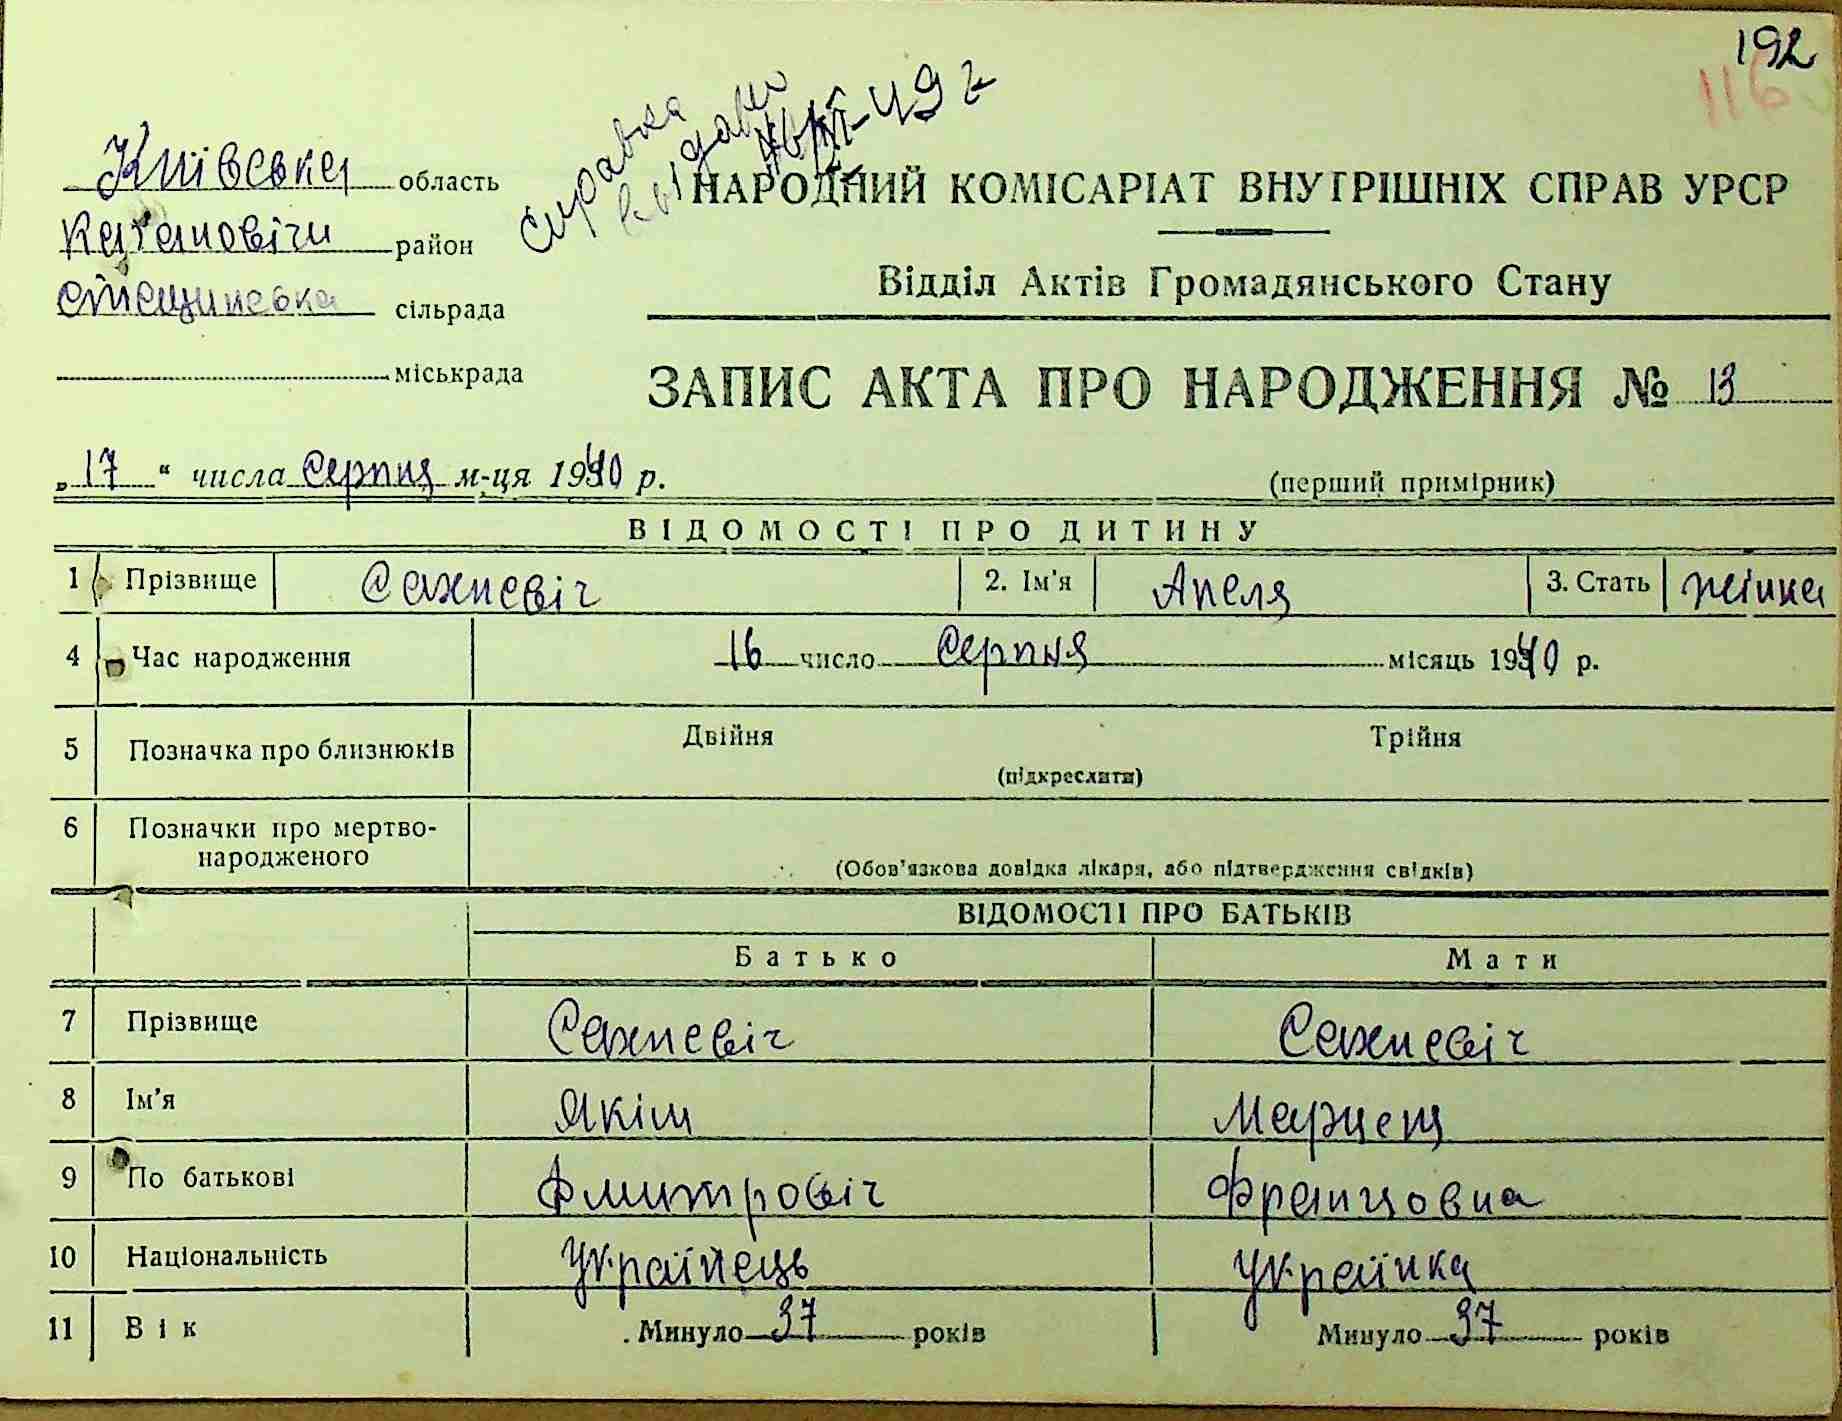 192
116
справка
выдана
49 г
Київська область
НАРОДНИЙ КОМІСАРІАТ ВНУТРІШНІХ СПРАВ УРСР
Кагановічи район
Відділ Актів Громадянського Стану
Стещинська сільрада
міськрада
ЗАПИС АКТА ПРО НАРОДЖЕННЯ № 13
„17“ числа Серпня м-ця 1940 р.
(перший примірник)
ВІДОМОСТІ ПРО ДИТИНУ
1 Прізвище Сахневіч 2. Ім'я Анеля 3. Стать жінка
4 Час народження 16 число Серпня місяць 1940 р.
5 Позначка про близнюків Двійня Трійня
(підкреслити)
6 Позначки про мертво-
народженого
(Обов'язкова довідка лікаря, або підтвердження свідків)
ВІДОМОСТІ ПРО БАТЬКІВ
Батько Мати
7 Прізвище Сахневіч Сахневіч
8 Ім'я Якім Марцеля
9 По батькові Дмитровіч Францовна
10 Національність Українець Українка
11 Вік Минуло 37 років Минуло 37 років